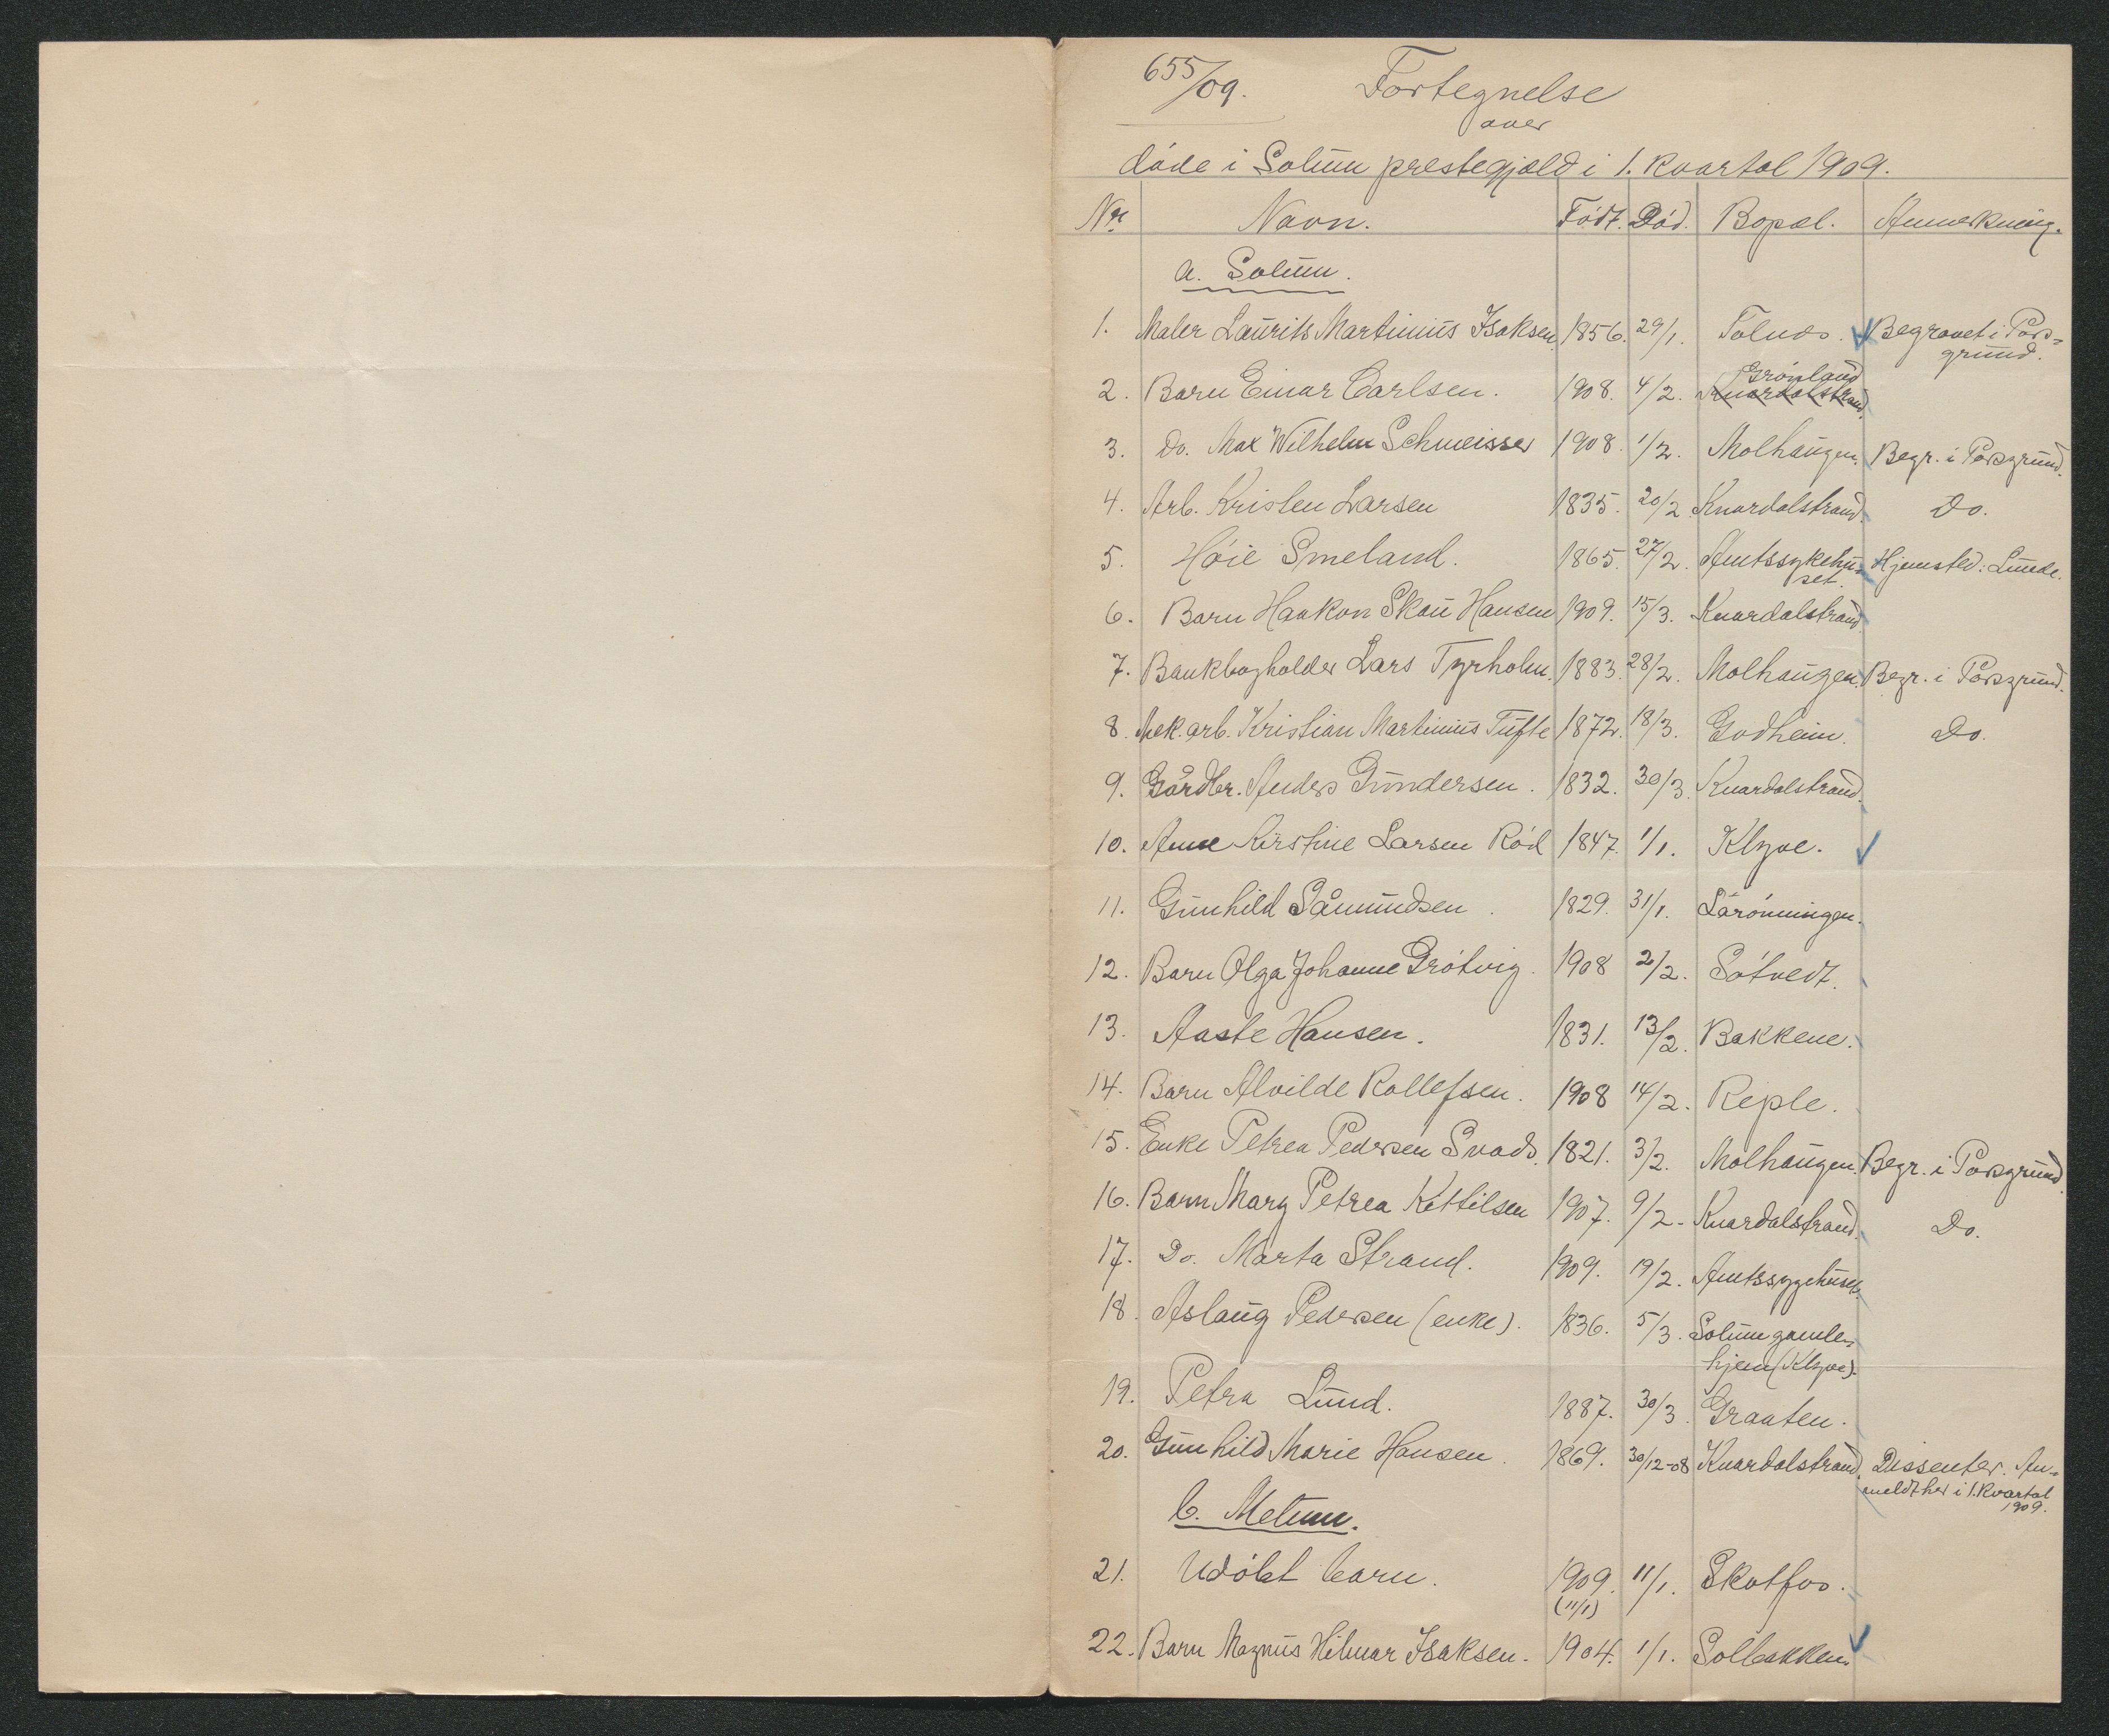 655/09. Fortegnelse
over
døde i Solum prestegjæld i 1. kvartal 1909.
Nr. Navn. Født. Død. Bopæl. Anmerkning.
a. Solum.
1. Maler Laurits Martinius Isaksen. 1856. 29/1. Tolnæs. Begravet i Pors-
grund.
2. Barn Einar Carlsen. 1908. 4/2. Grønland
Knardalstrand.
3. Do. Max Wilhelm Schmeisser 1908. 1/2. Molhaugen. Begr. i Porsgrund.
4. Arb. Kristen Larsen 1835. 20/2 Knardalstrand. Do.
5. Høie Smeland. 1865. 27/2. Amtssykehu- Hjemsted: Lunde.
set.
6. Barn Haakon Skau Hansen 1909. 15/3. Knardalstrand.
7. Bankbogholder Lars Tyrholm. 1883. 28/2. Molhaugen. Begr. i Porsgrund.
8. Mek. arb. Kristian Martinius Tufte 1872. 18/3. Godheim. Do.
9. Gårdbr. Anders Gundersen. 1832. 30/3. Knardalstrand.
10. Anne Kirstine Larsen Rød 1847. 1/1. Klyve.
11. Gunhild Såmundsen. 1829. 31/1. Lårønningen.
12. Barn Olga Johanne Grøtvig. 1908 2/2. Søtvedt.
13. Aaste Hansen. 1831. 13/2. Bakkene.
14. Barn Alvilde Rollefsen. 1908 14/2. Reple.
15. Enke Petrea Pedersen Svads. 1821. 3/2. Molhaugen. Begr. i Porsgrund.
16. Barn Mary Petrea Kittilsen 1907. 9/2. Knardalstrand. Do.
17. Do. Marta Strand. 1909. 19/2. Amtssygehuset.
18. Aslaug Pedersen (enke). 1836. 5/3. Solum gamle-
hjem (Klyve).
19. Petra Lund. 1887. 30/3. Graaten.
20. Gunhild Marie Hansen. 1869. 30/12-08 Knardalstrand. Dissenter. An-
meldt her i 1. kvartal
1909.
b. Melum.
21. Udøbt barn. 1909. 11/1. Skotfos.
(11/1)
22. Barn Magnus Hilmar Isaksen. 1904. 1/1. Solbakken.